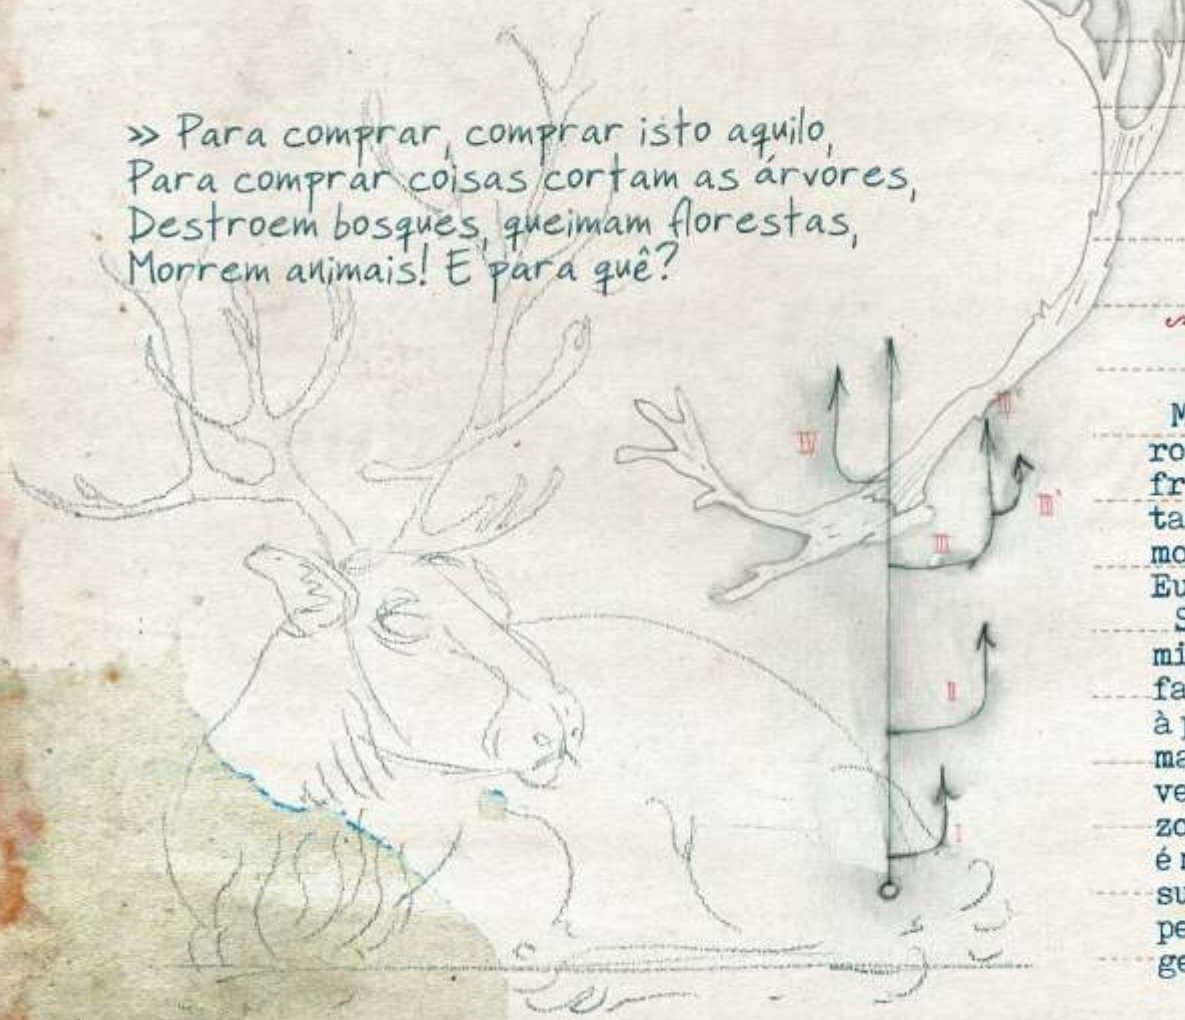 >> Para comprar, comprar isto aquilo,
Para comprar coisas cortam as árvores,
Destroem bosques, queimam florestas,
Morrem animais! E para quê?
IV
III'
III'
III
II
I
M
ro
fr
ta
mo
Eu
S
mi
fa
à p
ma
ve
zo
é
su
pe
ge